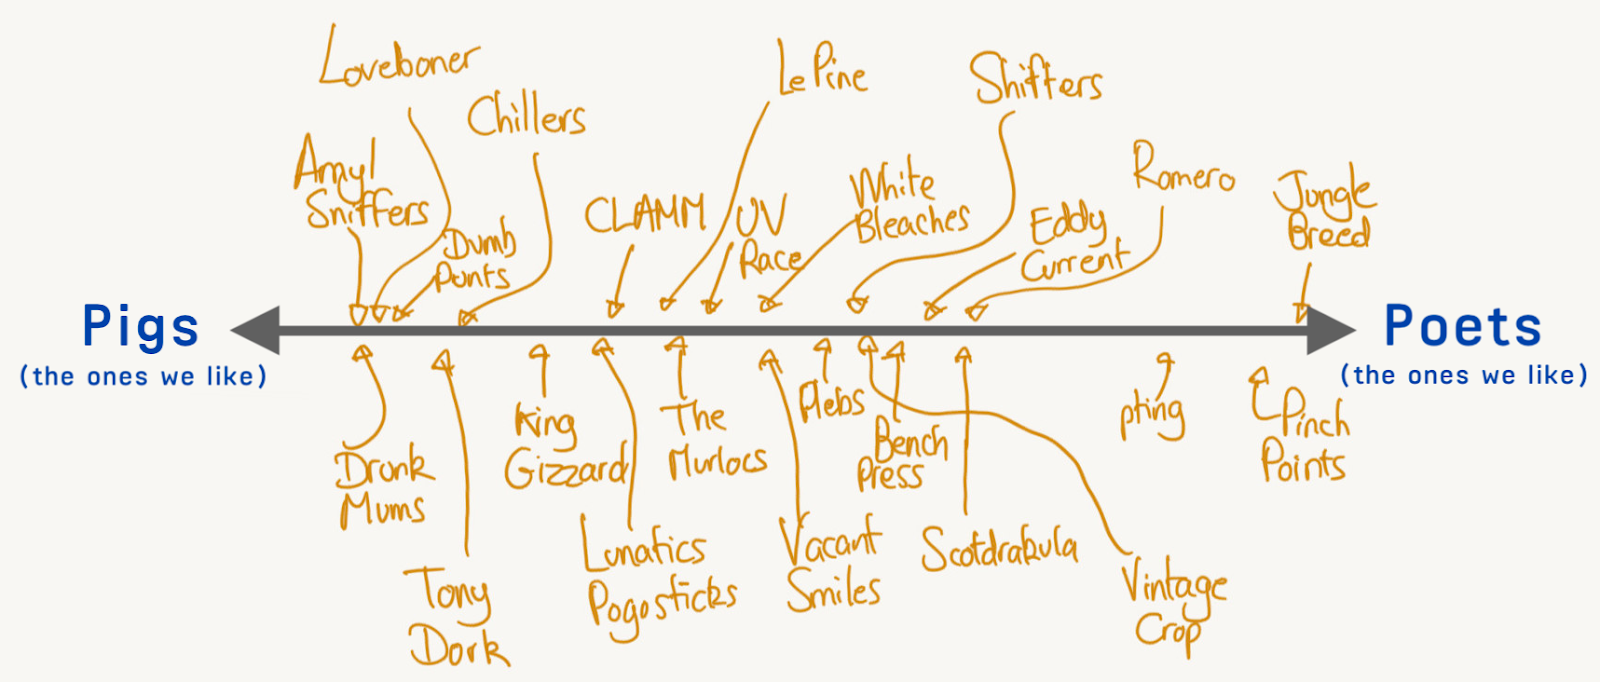 Loveboner
Le Pine
Shifters
Chillers
Amyl
Sniffers
Romero
White
Bleaches
Jungle
Breed
CLAMM
UV
Race
Eddy
Current
Dumb
Punts
Pigs
(the ones we like)
Poets
(the ones we like)
Drunk
Mums
King
Gizzard
The
Murlocs
Plebs
Bench
Press
pting
Pinch
Points
Tony
Dork
Lunatics
Pogosticks
Vacant
Smiles
Scotdrakula
Vintage
Crop